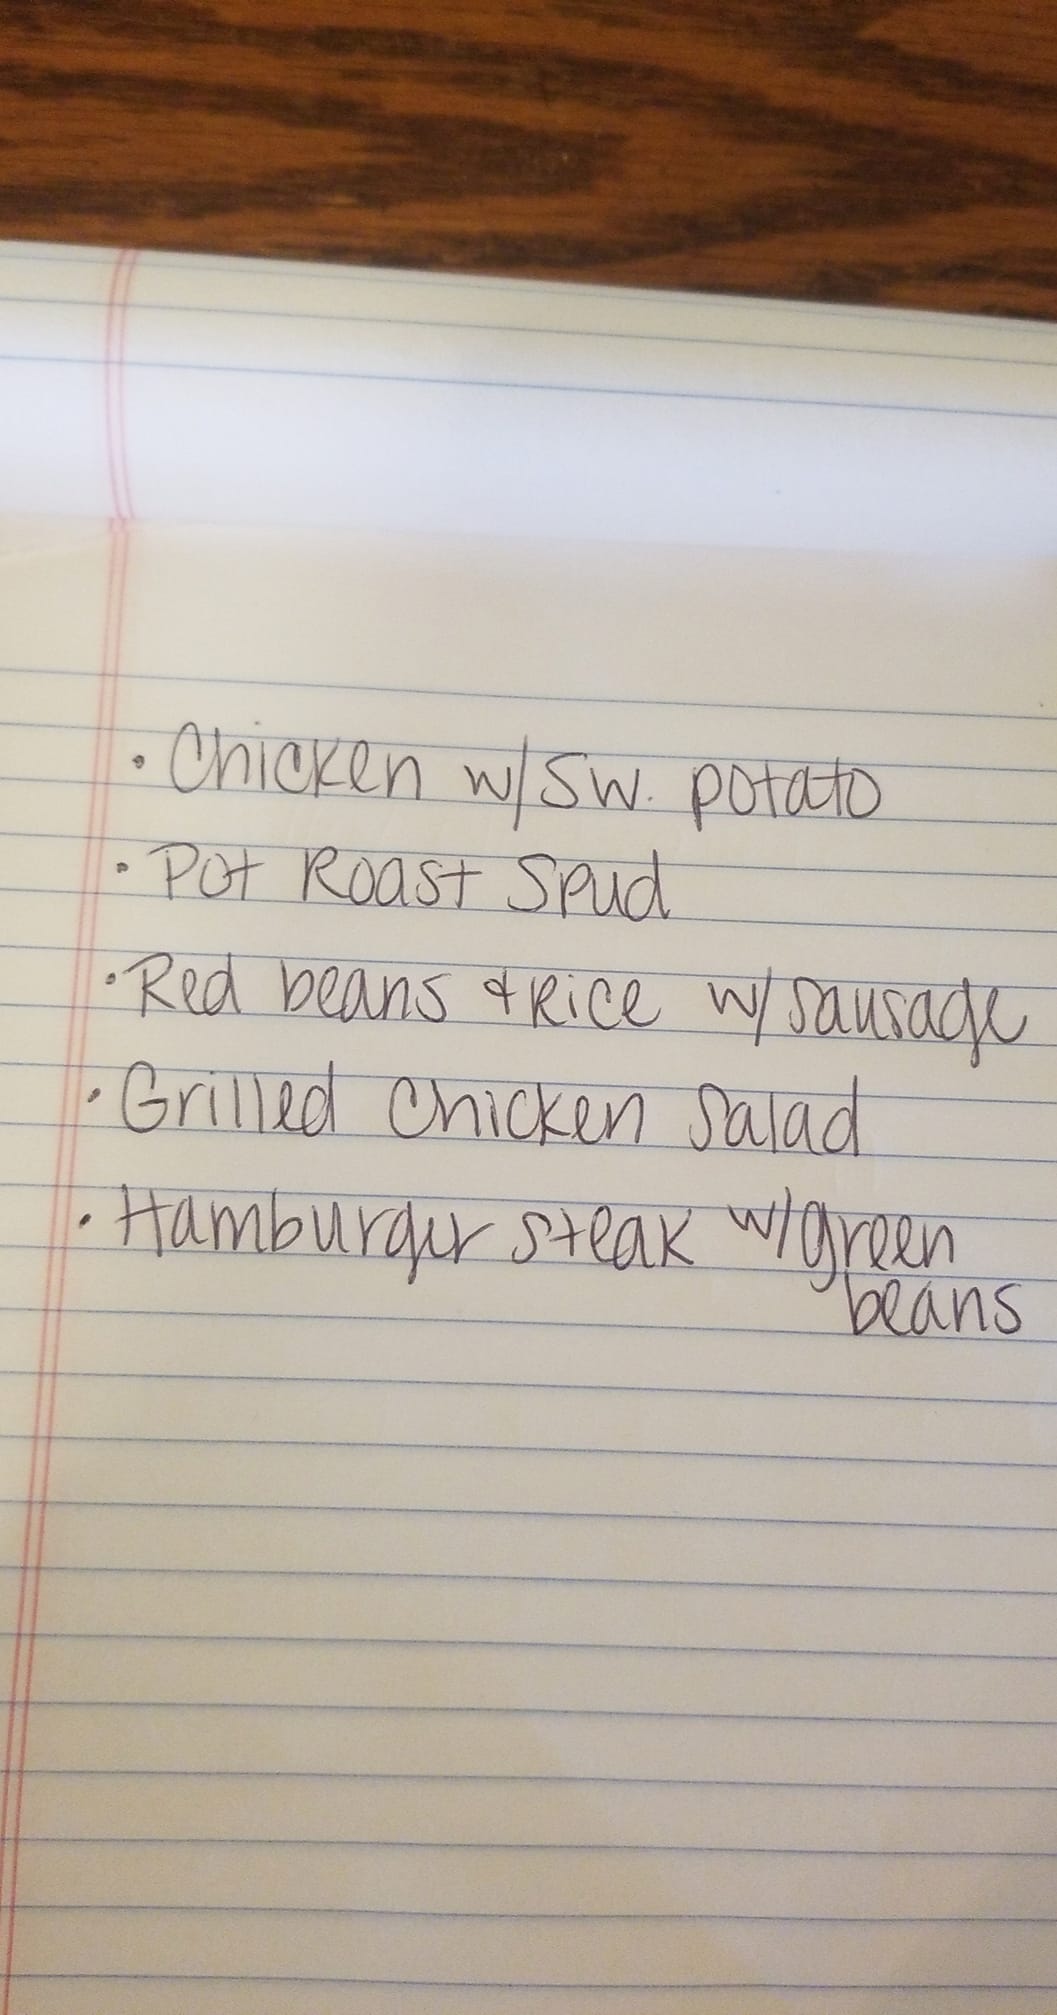 · Chicken w/ Sw. potato
· Pot Roast Spud
· Red beans & Rice w/ sausage
· Grilled Chicken Salad
· Hamburger steak w/ green
beans